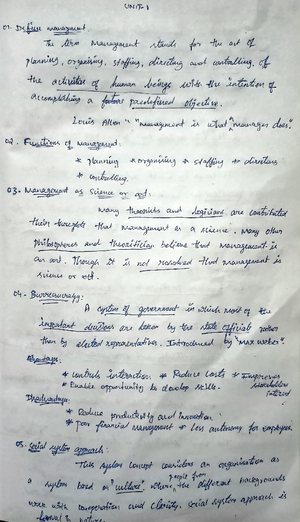 UNIT-1
01. Define management.
The term management stands for the act of
planning, organising, staffing, directing and controlling, of
the activities of human beings with the intention of
accomplishing a predefined objective.
Louis Allen - "management is what manager does".
02. Functions of management:
* planning * organising * staffing * direction
* controlling.
03. Management as science or art.
Many theorists and logicians are contributed
their thoughts that management as a science. Many other
philosopheres and theoriticians believe that management is
an art. Though it is not resolved that management is
science or art.
04. Bureaucracy:
A system of government in which most of the
important decisions are taken by the state officials rather
than by elected representatives. Introduced by "max weber".
Advantage:
* controls interaction: * Reduce costs * Improves
* Enable opportunity to develop skills. stakeholders
interest
Disadvantage:
* Reduce productivity and innovation.
* Poor financial management * Less autonomy for employees.
05. Social system approach:
This system concept considers an organisation as
a system based on "culture" where people from the different backgrounds
work with cooperation and clarity. Social system approach is
formal in nature.